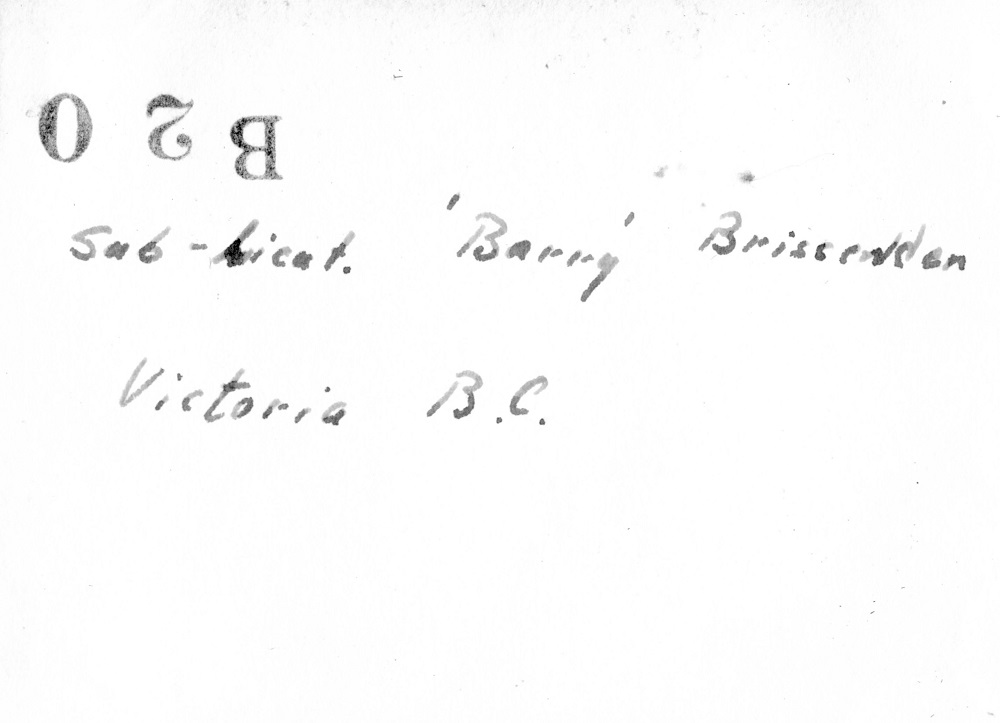 B 2 0
Sub-Lieut. 'Barry' Brissenden
Victoria B.C.